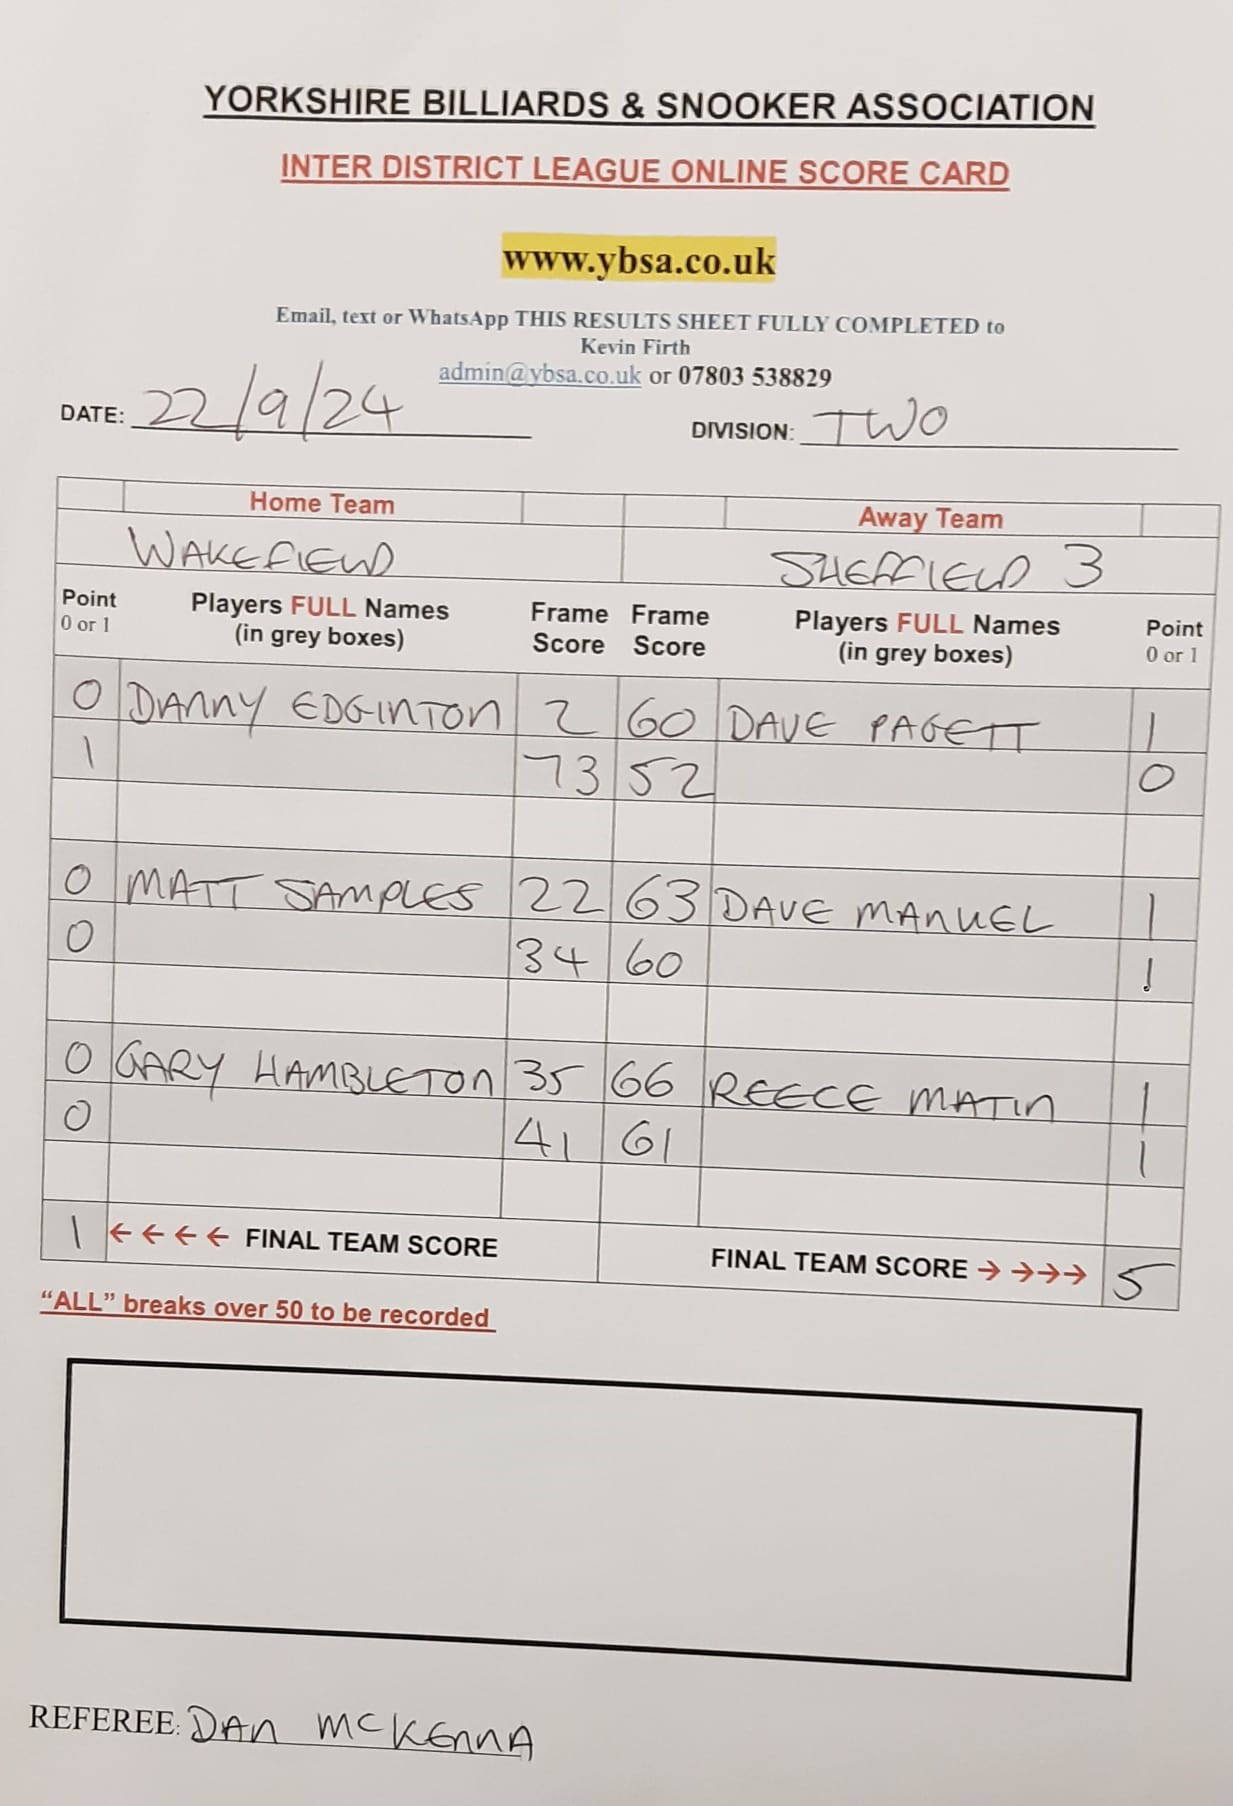 YORKSHIRE BILLIARDS & SNOOKER ASSOCIATION
INTER DISTRICT LEAGUE ONLINE SCORE CARD
www.ybsa.co.uk
Email, text or WhatsApp THIS RESULTS SHEET FULLY COMPLETED to
Kevin Firth
admin@ybsa.co.uk or 07803 538829
DATE: 22/9/24 DIVISION: TWO
Home Team Away Team
WAKEFIELD SHEFFIELD 3
Point Players FULL Names Frame Frame Players FULL Names Point
0 or 1 (in grey boxes) Score Score (in grey boxes) 0 or 1
0 DANNY EDGINTON 2 60 DAVE PAGETT 1
1 73 52 0
0 MATT SAMPLES 22 63 DAVE MANUEL 1
0 34 60 1
0 GARY HAMBLETON 35 66 REECE MATIN 1
0 41 61 1
1 ←←←← FINAL TEAM SCORE FINAL TEAM SCORE →→→→ 5
“ALL” breaks over 50 to be recorded
REFEREE: DAN MCKENNA